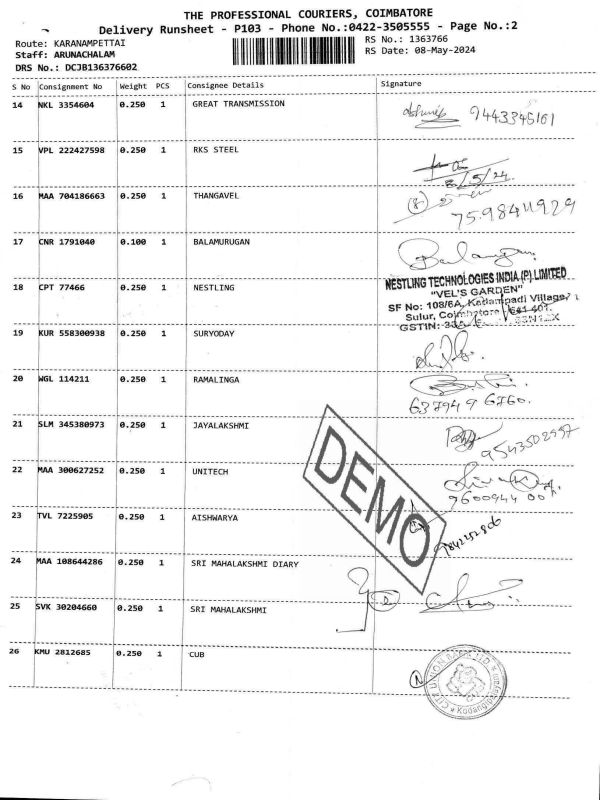 THE PROFESSIONAL COURIERS, COIMBATORE
Delivery Runsheet - P103 - Phone No.:0422-3505555 - Page No.:2
Route: KARANAMPETTAI
RS No.: 1363766
Staff: ARUNACHALAM
RS Date: 08-May-2024
DRS No.: DCJB136376602
S No Consignment No Weight PCS Consignee Details Signature
14 NKL 3354604 0.250 1 GREAT TRANSMISSION
9443345161
15 VPL 222427598 0.250 1 RKS STEEL
8/5/24.
16 MAA 704186663 0.250 1 THANGAVEL
7598411929
17 CNR 1791040 0.100 1 BALAMURUGAN
18 CPT 77466 0.250 1 NESTLING
NESTLING TECHNOLOGIES INDIA (P) LIMITED
"VEL'S GARDEN"
SF No: 108/6A, Kadampadi Village,
Sulur, Coimbatore - 641 401.
GSTIN:
19 KUR 558300938 0.250 1 SURYODAY
20 WGL 114211 0.250 1 RAMALINGA
637949 6760.
21 SLM 345380973 0.250 1 JAYALAKSHMI
22 MAA 300627252 0.250 1 UNITECH
23 TVL 7225905 0.250 1 AISHWARYA
DEMO
24 MAA 108644286 0.250 1 SRI MAHALAKSHMI DIARY
25 SVK 30204660 0.250 1 SRI MAHALAKSHMI
26 KMU 2812685 0.250 1 CUB
CITY UNION BANK LTD